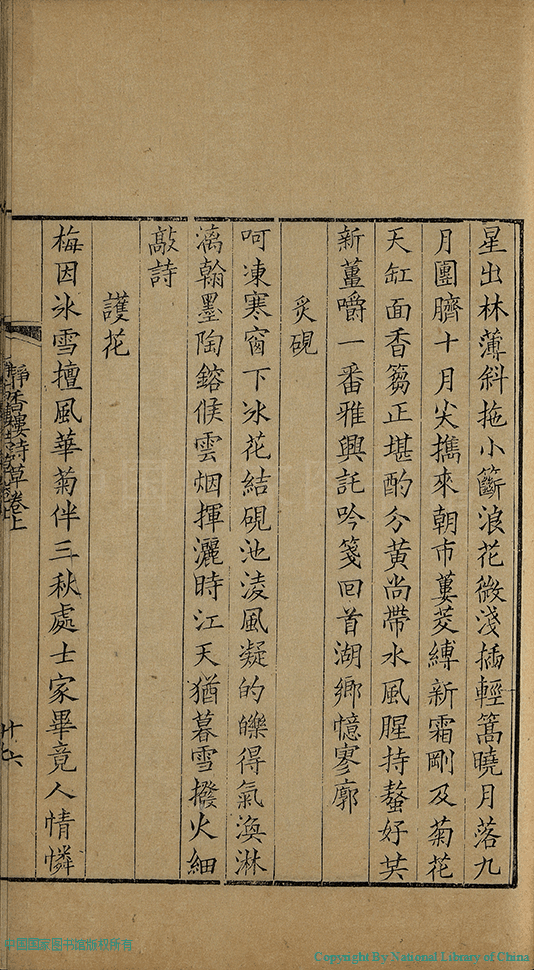 星出林薄斜拖小籪浪花微淺插輕篙曉月落九
月團臍十月尖攜來朝市蔞茭縛新霜剛及菊花
天缸面香篘正堪酌分黃尚帶水風腥持螯好共
新薑嚼一番雅興託吟箋回首湖鄉憶寥廓
炙硯
呵凍寒窗下冰花結硯池淩風凝的皪得氣渙淋
漓翰墨陶鎔候雲烟揮灑時江天猶暮雪撥火細
敲詩
護花
梅因冰雪擅風華菊伴三秋處士家畢竟人情憐
靜香樓詩草卷上
中国国家图书馆版权所有
Copyright By National Library of China